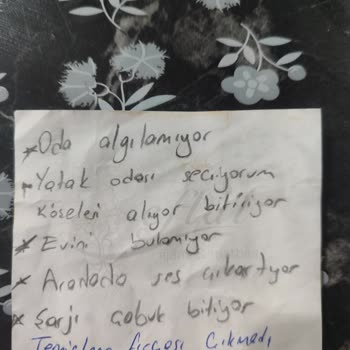 * Oda algılamıyor
* Yatak odası seçiyorum
köşeleri alıyor bitiriyor
* Evini bulamıyor
* Arada da ses çıkartıyor
* Şarjı çabuk bitiyor
Temizleme fırçası çıkmadı